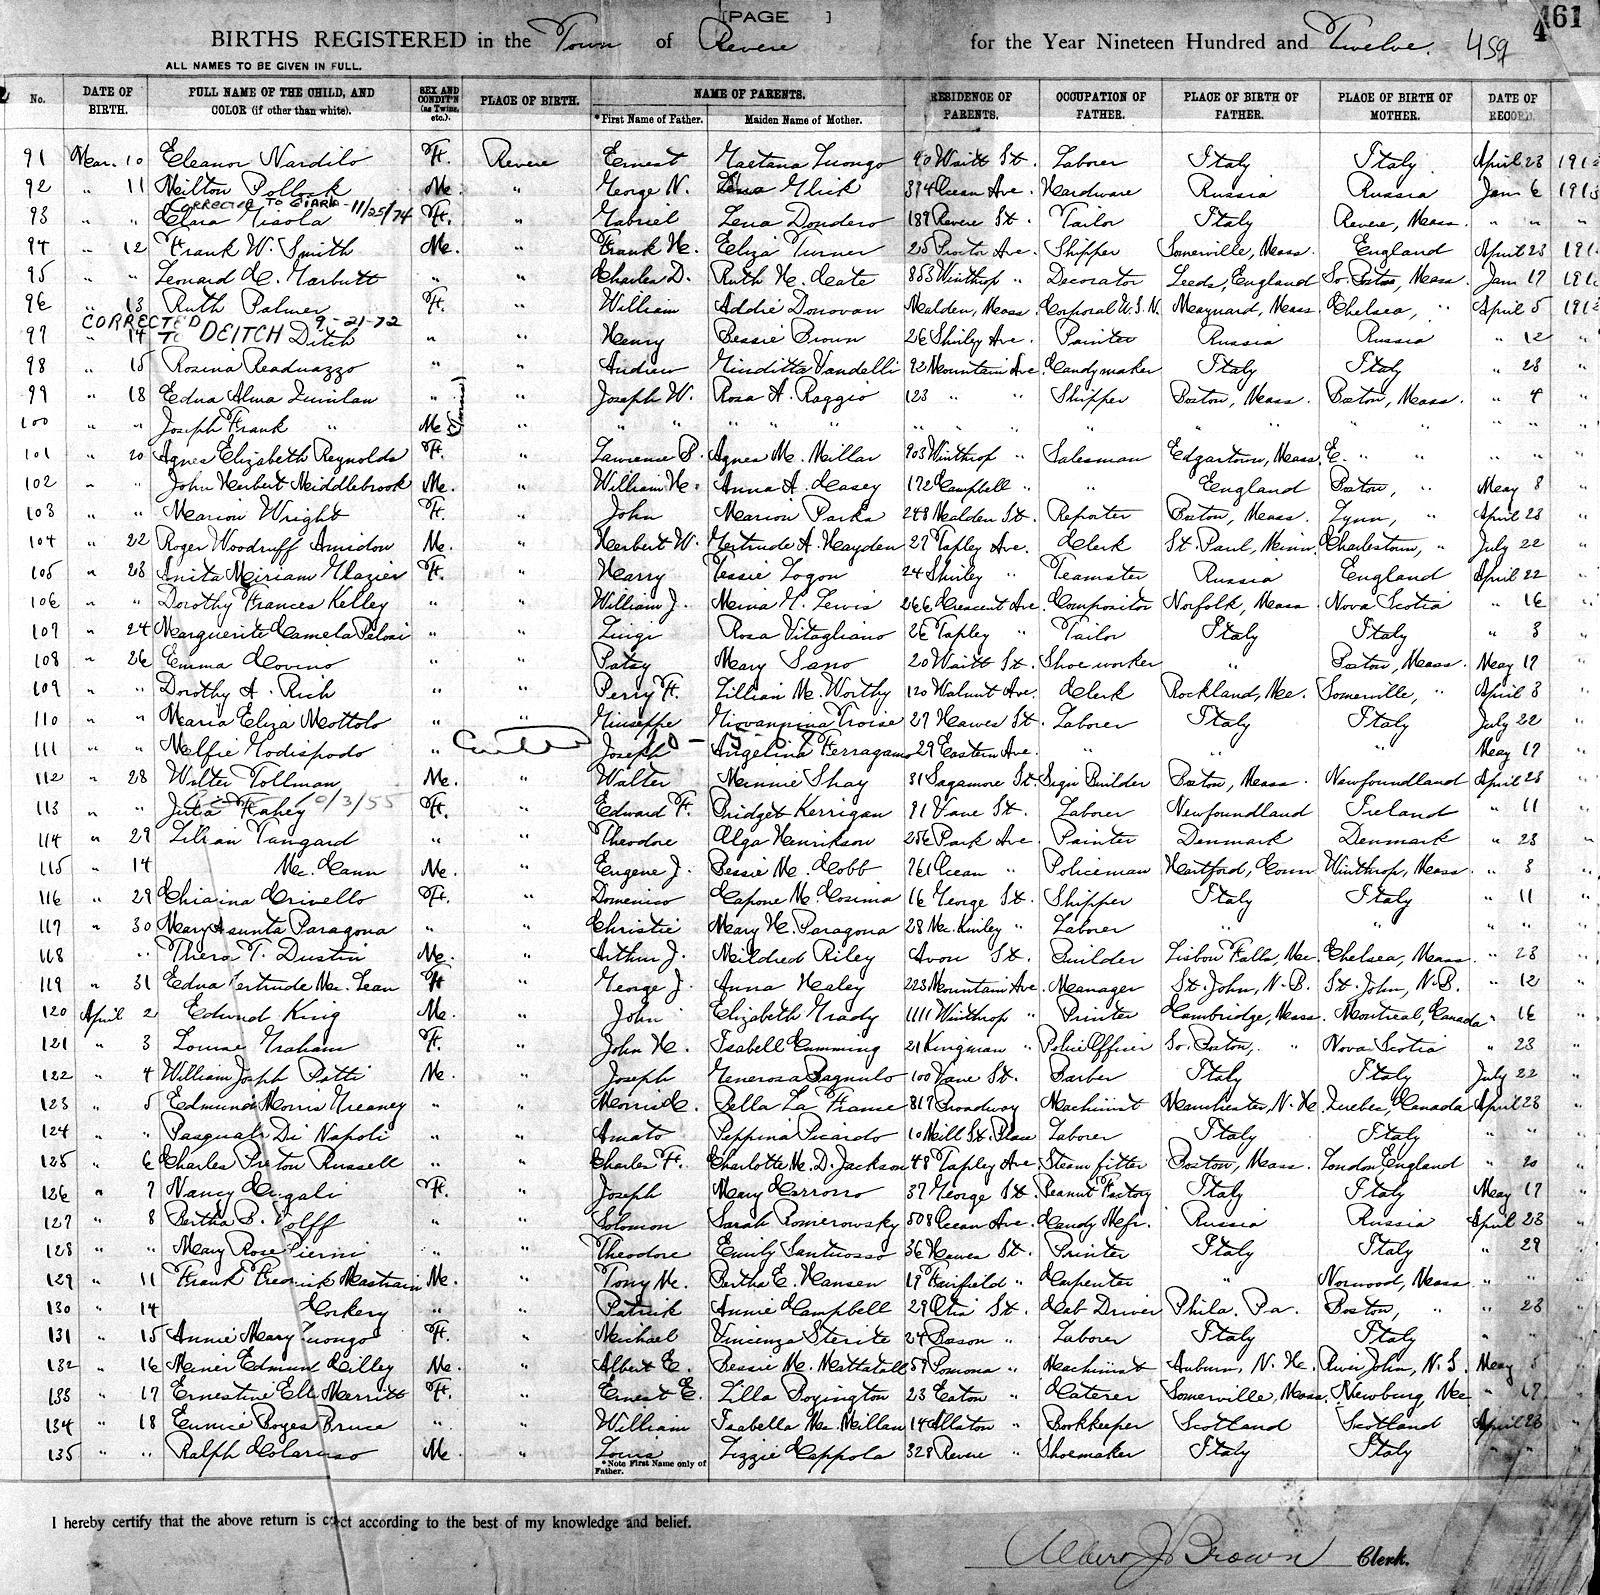 [PAGE ]
461
BIRTHS REGISTERED in the Town of Revere for the Year Nineteen Hundred and Twelve. 459
ALL NAMES TO BE GIVEN IN FULL.
No. DATE OF BIRTH. FULL NAME OF THE CHILD, AND COLOR (if other than white). SEX AND CONDIT'N (as Twins, etc.). PLACE OF BIRTH. NAME OF PARENTS. *First Name of Father. Maiden Name of Mother. RESIDENCE OF PARENTS. OCCUPATION OF FATHER. PLACE OF BIRTH OF FATHER. PLACE OF BIRTH OF MOTHER. DATE OF RECORD.
91 Mar. 10 Eleanor Nardilo F. Revere Ernest Gaetana Luongo 90 Waitt St. Laborer Italy Italy April 23 191
92 " 11 Milton Pollock M. " George N. Lena Glick 394 Ocean Ave. Hardware Russia Russia Jan 6 1913
CORRECTED TO CIARA - 11/25/74
93 " " Clara Tisola F. " Gabriel Lena Dondero 189 Revere St. Tailor Italy Revere, Mass " " "
94 " 12 Frank W. Smith M. " Frank H. Eliza Turner 25 Proctor Ave. Shipper Somerville, Mass. England April 23 191
95 " " Leonard C. Garbutt " " Charles D. Ruth H. Cate 853 Winthrop " Decorator Leeds, England So. Boston, Mass Jan 17 191
96 " 13 Ruth Palmer F. " William Addie Donovan Malden, Mass. Corporal U.S.N. Maynard, Mass. Chelsea, " April 5 191
CORRECTED TO DEITCH 9-21-72
97 " 14 Ditch " " Henry Bessie Brown 26 Shirley Ave. Painter Russia Russia " 12 "
98 " 15 Rosina Readuazzo " " Andrew Ginditta Vandelli 92 Mountain Ave. Candymaker Italy Italy " 23 "
99 " 18 Edna Alma Quinlan " (Twins) " Joseph W. Rosa A. Raggio 123 " " Shipper Boston, Mass. Boston, Mass. " 4 "
100 " " Joseph Frank " M. " " " " " " " " " " " " "
101 " 20 Agnes Elizabeth Reynolds F. " Lawrence P. Agnes M. Millar 903 Winthrop " Salesman Edgartown, Mass. E. " " " " "
102 " " John Herbert Middlebrook M. " William H. Anna A. Casey 172 Campbell " " England Boston, " May 8 "
103 " " Marion Wright F. " John Marion Parks 248 Malden St. Reporter Boston, Mass. Lynn, " April 23 "
104 " 22 Roger Woodruff Amidon M. " Herbert W. Gertrude A. Hayden 27 Tapley Ave. Clerk St. Paul, Minn. Charlestown, " July 22 "
105 " 23 Anita Miriam Glazier F. " Harry Tessie Logon 24 Shirley " Teamster Russia England April 22 "
106 " " Dorothy Frances Kelley " " William J. Mina G. Lewis 266 Crescent Ave. Compositor Norfolk, Mass Nova Scotia " 16 "
107 " 24 Marguerite Camela Pelosi " " Luigi Rosa Vitagliano 26 Tapley " Tailor Italy Italy " 3 "
108 " 26 Emma Covino " " Patsy Mary Sano 20 Waitt St. Shoe worker " Boston, Mass. May 17 "
109 " " Dorothy A. Rich " " Perry F. Lillian M. Worthy 120 Walnut Ave. Clerk Rockland, Me. Somerville, " April 3 "
110 " " Maria Eliza Mottolo " " Giuseppe Giovannina Troise 27 Hawes St. Laborer Italy Italy July 22 "
111 " " Melfie Godispodo " Joseph Angelina Ferragamo 29 Eastern Ave. " " " May 17 "
112 " 28 Walter Tollman M. " Walter Minnie Shay 31 Sagamore St. Sign Builder Boston, Mass. Newfoundland April 23 "
10/3/55
113 " " Julia Fahey F. " Edward F. Bridget Kerrigan 91 Vane St. Laborer Newfoundland Ireland " 11 "
114 " 29 Lillian Tangard " " Theodore Olga Henrikson 256 Park Ave. Painter Denmark Denmark " 23 "
115 " 14 Mc. Cann M. " Eugene J. Bessie M. Cobb 761 Ocean " Policeman Hartford, Conn Winthrop, Mass. " 3 "
116 " 29 Chiaina Crivello F. " Domenico Capone M. Cosima 16 George St. Shipper Italy Italy " 11 "
117 " 30 Mary Asunta Paragona " " Christie Mary H. Paragona 28 Mc. Kinley " Laborer " " " " "
118 " Thera T. Dustin M. " Arthur J. Mildred Riley Avon St. Builder Lisbon Falls, Me. Chelsea, Mass. " 23 "
119 " 31 Edna Gertrude Mc. Lean F. " George J. Anna Healey 223 Mountain Ave. Manager St. John, N.B. St. John, N.B. " 12 "
120 April 2 Edmund King M. " John Elizabeth Grady 1111 Winthrop " Printer Cambridge, Mass. Montreal, Canada " 16 "
121 " 3 Louise Graham F. " John H. Isabell Cumming 21 Kingman " Police Officer So. Boston, " Nova Scotia " 23 "
122 " 4 William Joseph Patti M. " Joseph Generosa Bagnulo 100 Vane St. Barber Italy Italy July 22 "
123 " 5 Edmund Morris Greaney " " Morris C. Bella La France 817 Broadway Machinist Manchester, N.H. Quebec, Canada April 23 "
124 " " Pasquale Di Napoli " " Amato Peppina Picardo 10 Mill St. Place Laborer Italy Italy " " "
125 " 6 Charles Preton Russell " " Charles F. Charlotte M. D. Jackson 48 Tapley Ave. Steam fitter Boston, Mass. London England " 20 "
126 " 7 Nancy Cugali F. " Joseph Mary Carrono 37 George St. Peanut Factory Italy Italy May 17 "
127 " 8 Bertha B. Volff " " Solomon Sarah Pomerowsky 508 Ocean Ave. Candy Mefr. Russia Russia April 23 "
128 " " Mary Rose Pierni " " Theodore Emily Santuosso 36 Hawes St. Printer Italy Italy " 29 "
129 " 11 Frank Fredrick Mastrain M. " Tony M. Bertha E. Hansen 19 Fairfield " Carpenter " Norwood, Mass. " " "
130 " 14 Corkery " " Patrick Annie Campbell 29 Otis St. Cab Driver Phila. Pa. Boston, " " 23 "
131 " 15 Annie Mary Luongo F. " Michael Vincenza Sterite 24 Bason " Laborer Italy Italy " " "
132 " 16 Miner Edmund Cilley M. " Albert E. Bessie M. Mattatall 59 Pomona " Machinist Auburn, N.H. River John, N.S. May 8 "
133 " 17 Ernestine Ella Merritt F. " Ernest E. Zilla Boyington 23 Eaton " Caterer Somerville, Mass. Newburg, Me " 17 "
134 " 18 Eunice Boyes Bruce " " William Isabella Mc. Millan 14 Allston " Bookkeeper Scotland Scotland April 23 "
135 " " Ralph Colaruso M. " Louis Lizzie Cappola 328 Revere " Shoemaker Italy Italy " " "
*Note First Name only of Father.
I hereby certify that the above return is correct according to the best of my knowledge and belief.
Albert J. Brown Clerk.